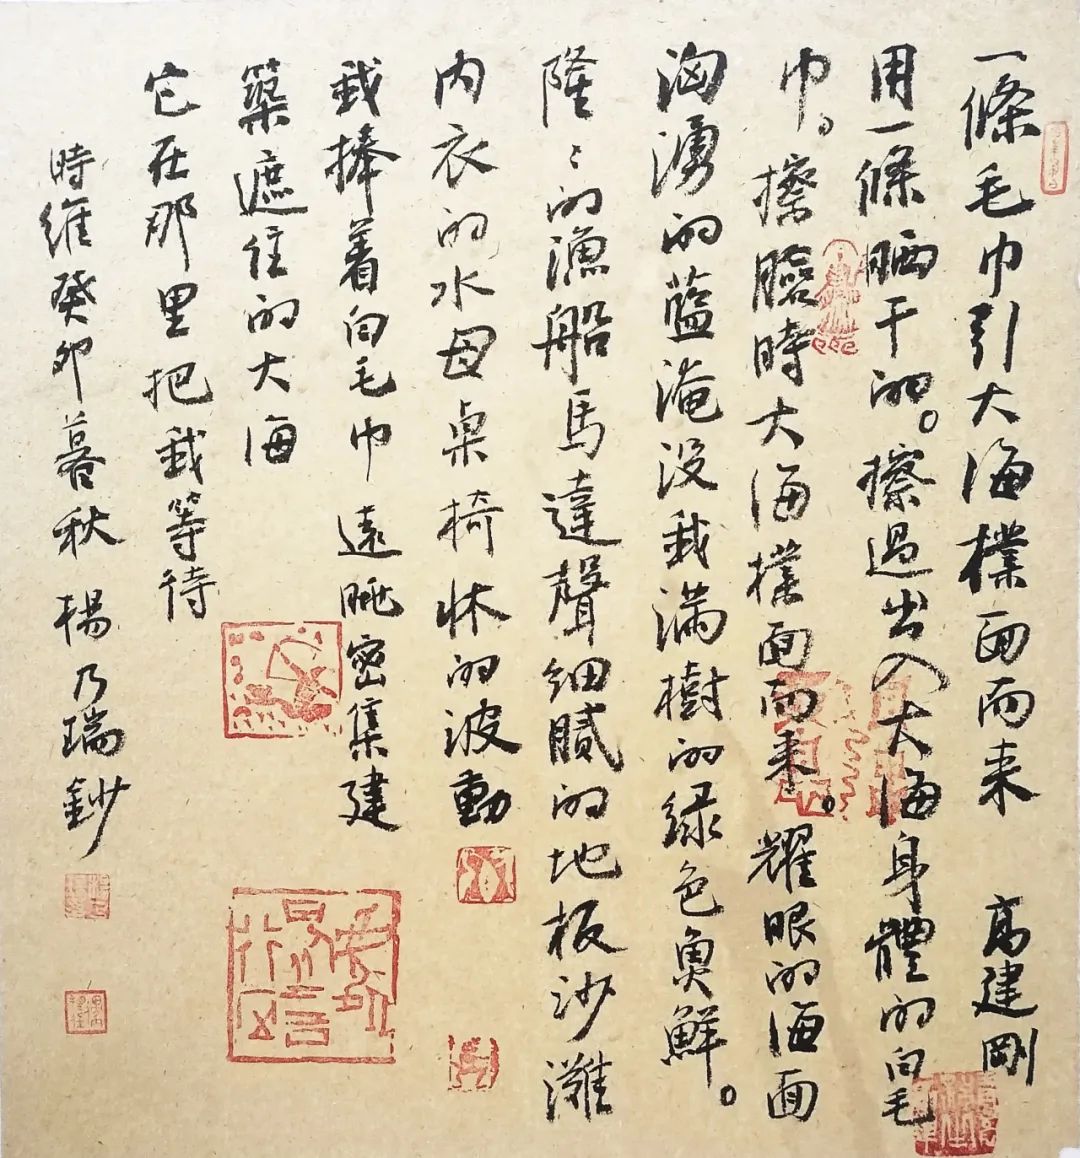 一條毛巾引大海樸面而来 高建剛
用一條晒干的。擦過出入大海身體的白毛
巾。擦臉時大海撲面而来。耀眼的海面
洶湧的藍淹没我满樹的绿色魚鮮。
隆隆的漁船馬達聲細膩的地板沙灘
内衣的水母桌椅牀的波動
我捧着白毛巾遠眺密集建
築遮住的大海
它在那里把我等待
時維癸卯暮秋楊乃瑞鈔